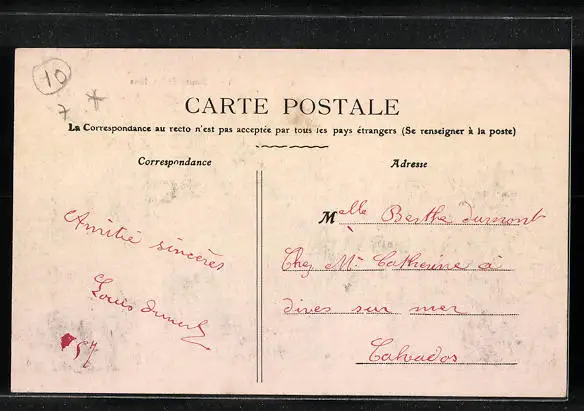 10
7 *
CARTE POSTALE
La Correspondance au recto n'est pas acceptée par tous les pays étrangers (Se renseigner à la poste)
Correspondance
Amitié sincères
Louis
57
Adresse
Melle Berthe dumont
Chez Mr Catherine à
dives sur mer
Calvados